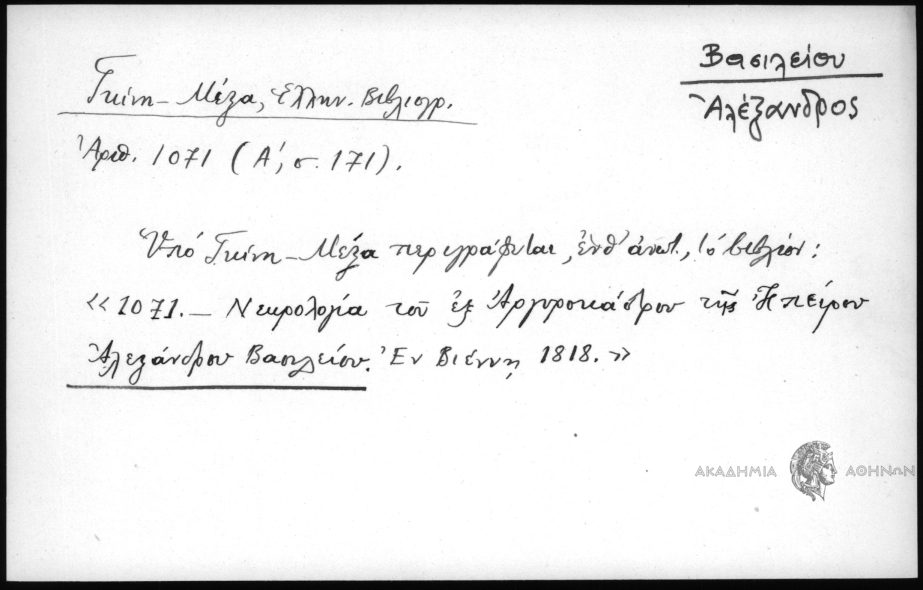 Βασιλείου
Ἀλέξανδρος
Γκίνη – Μέξα, Ἑλλην. Βιβλιογρ.
Ἀριθ. 1071 (Α', σ. 171).
Ὑπό Γκίνη – Μέξα περιγράφεται, ἐνθ' ἀνωτ., τό βιβλίον:
«1071. – Νεκρολογία τοῦ ἐξ Ἀργυροκάστρου τῆς Ἠπείρου
Ἀλεξάνδρου Βασιλείου. Ἐν Βιέννῃ 1818.»
ΑΚΑΔΗΜΙΑ ΑΘΗΝΩΝ